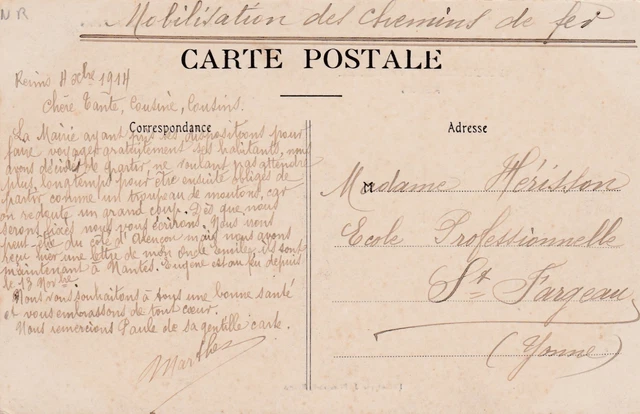 N R
Mobilisation des chemins de fer
CARTE POSTALE
Reims 4 xbre 1914
Chère Tante, Cousine, Cousins.
Correspondance
La Mairie ayant pris ses dispositions pour
faire voyager gratuitement ses habitants, nous
avons décidés de partir, ne voulant pas attendre
plus longtemps pour être ensuite obligés de
partir comme un troupeau de moutons, car
on redoute un grand coup. Dès que nous
serons fixés nous vous écrirons. Nous irons
peut-être du côté d'Alençon mais nous avons
reçu hier une lettre de mon oncle ils sont
maintenant à Nantes. Eugène est au feu depuis
le 13 Novbre.
Nous vous souhaitons à tous une bonne santé
et vous embrassons de tout cœur.
Nous remercions Paule de sa gentille carte.
Marthe
Adresse
Madame Hérisson
Ecole Professionnelle
St Fargeau
(Yonne)